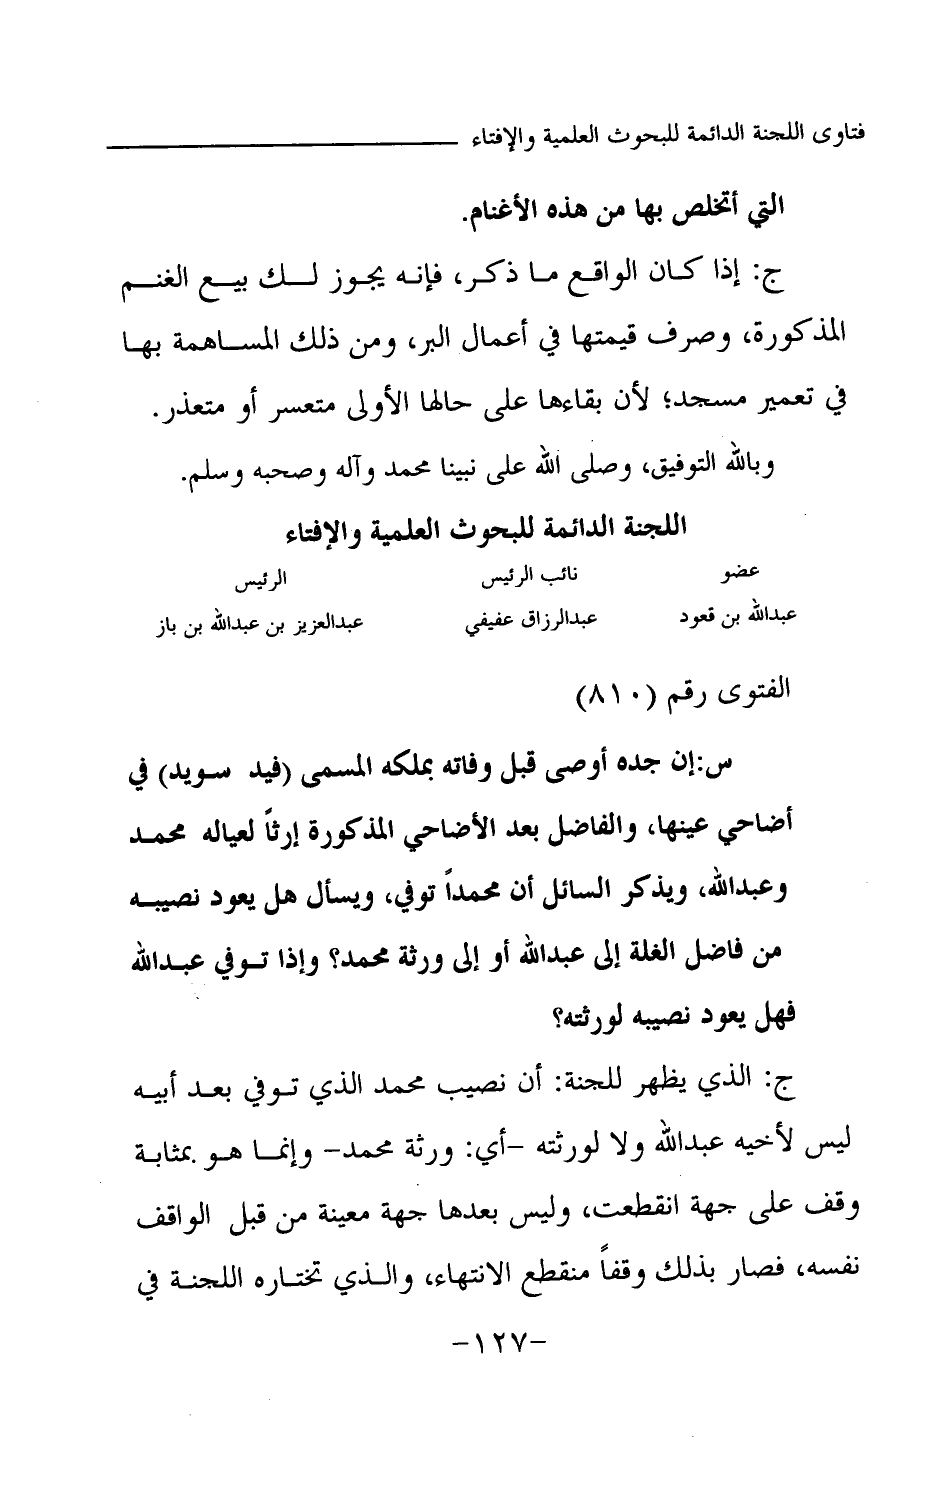 فتاوى اللجنة الدائمة للبحوث العلمية والإفتاء
التي أتخلص بها من هذه الأغنام.
ج: إذا كان الواقع ما ذكر، فإنه يجوز لك بيع الغنم
المذكورة، وصرف قيمتها في أعمال البر، ومن ذلك المساهمة بها
في تعمير مسجد؛ لأن بقاءها على حالها الأولى متعسر أو متعذر.
وبالله التوفيق، وصلى الله على نبينا محمد وآله وصحبه وسلم.
اللجنة الدائمة للبحوث العلمية والإفتاء
عضو نائب الرئيس الرئيس
عبدالله بن قعود عبدالرزاق عفيفي عبدالعزيز بن عبدالله بن باز
الفتوى رقم (٨١٠)
س:إن جده أوصى قبل وفاته بملكه المسمى (فيد سويد) في
أضاحي عينها، والفاضل بعد الأضاحي المذكورة إرثاً لعياله محمد
وعبدالله، ويذكر السائل أن محمداً توفي، ويسأل هل يعود نصيبه
من فاضل الغلة إلى عبدالله أو إلى ورثة محمد؟ وإذا توفي عبدالله
فهل يعود نصيبه لورثته؟
ج: الذي يظهر للجنة: أن نصيب محمد الذي توفي بعد أبيه
ليس لأخيه عبدالله ولا لورثته -أي: ورثة محمد- وإنما هو بمثابة
وقف على جهة انقطعت، وليس بعدها جهة معينة من قبل الواقف
نفسه، فصار بذلك وقفاً منقطع الانتهاء، والذي تختاره اللجنة في
-١٢٧-